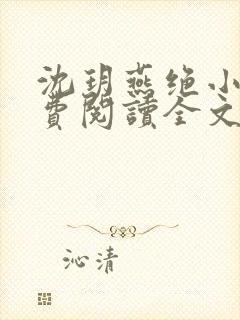 沈玥燕绝小
費閱讀全文
沁清